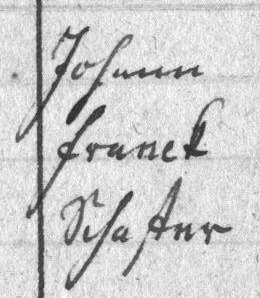 Johann
Franck
Schaster